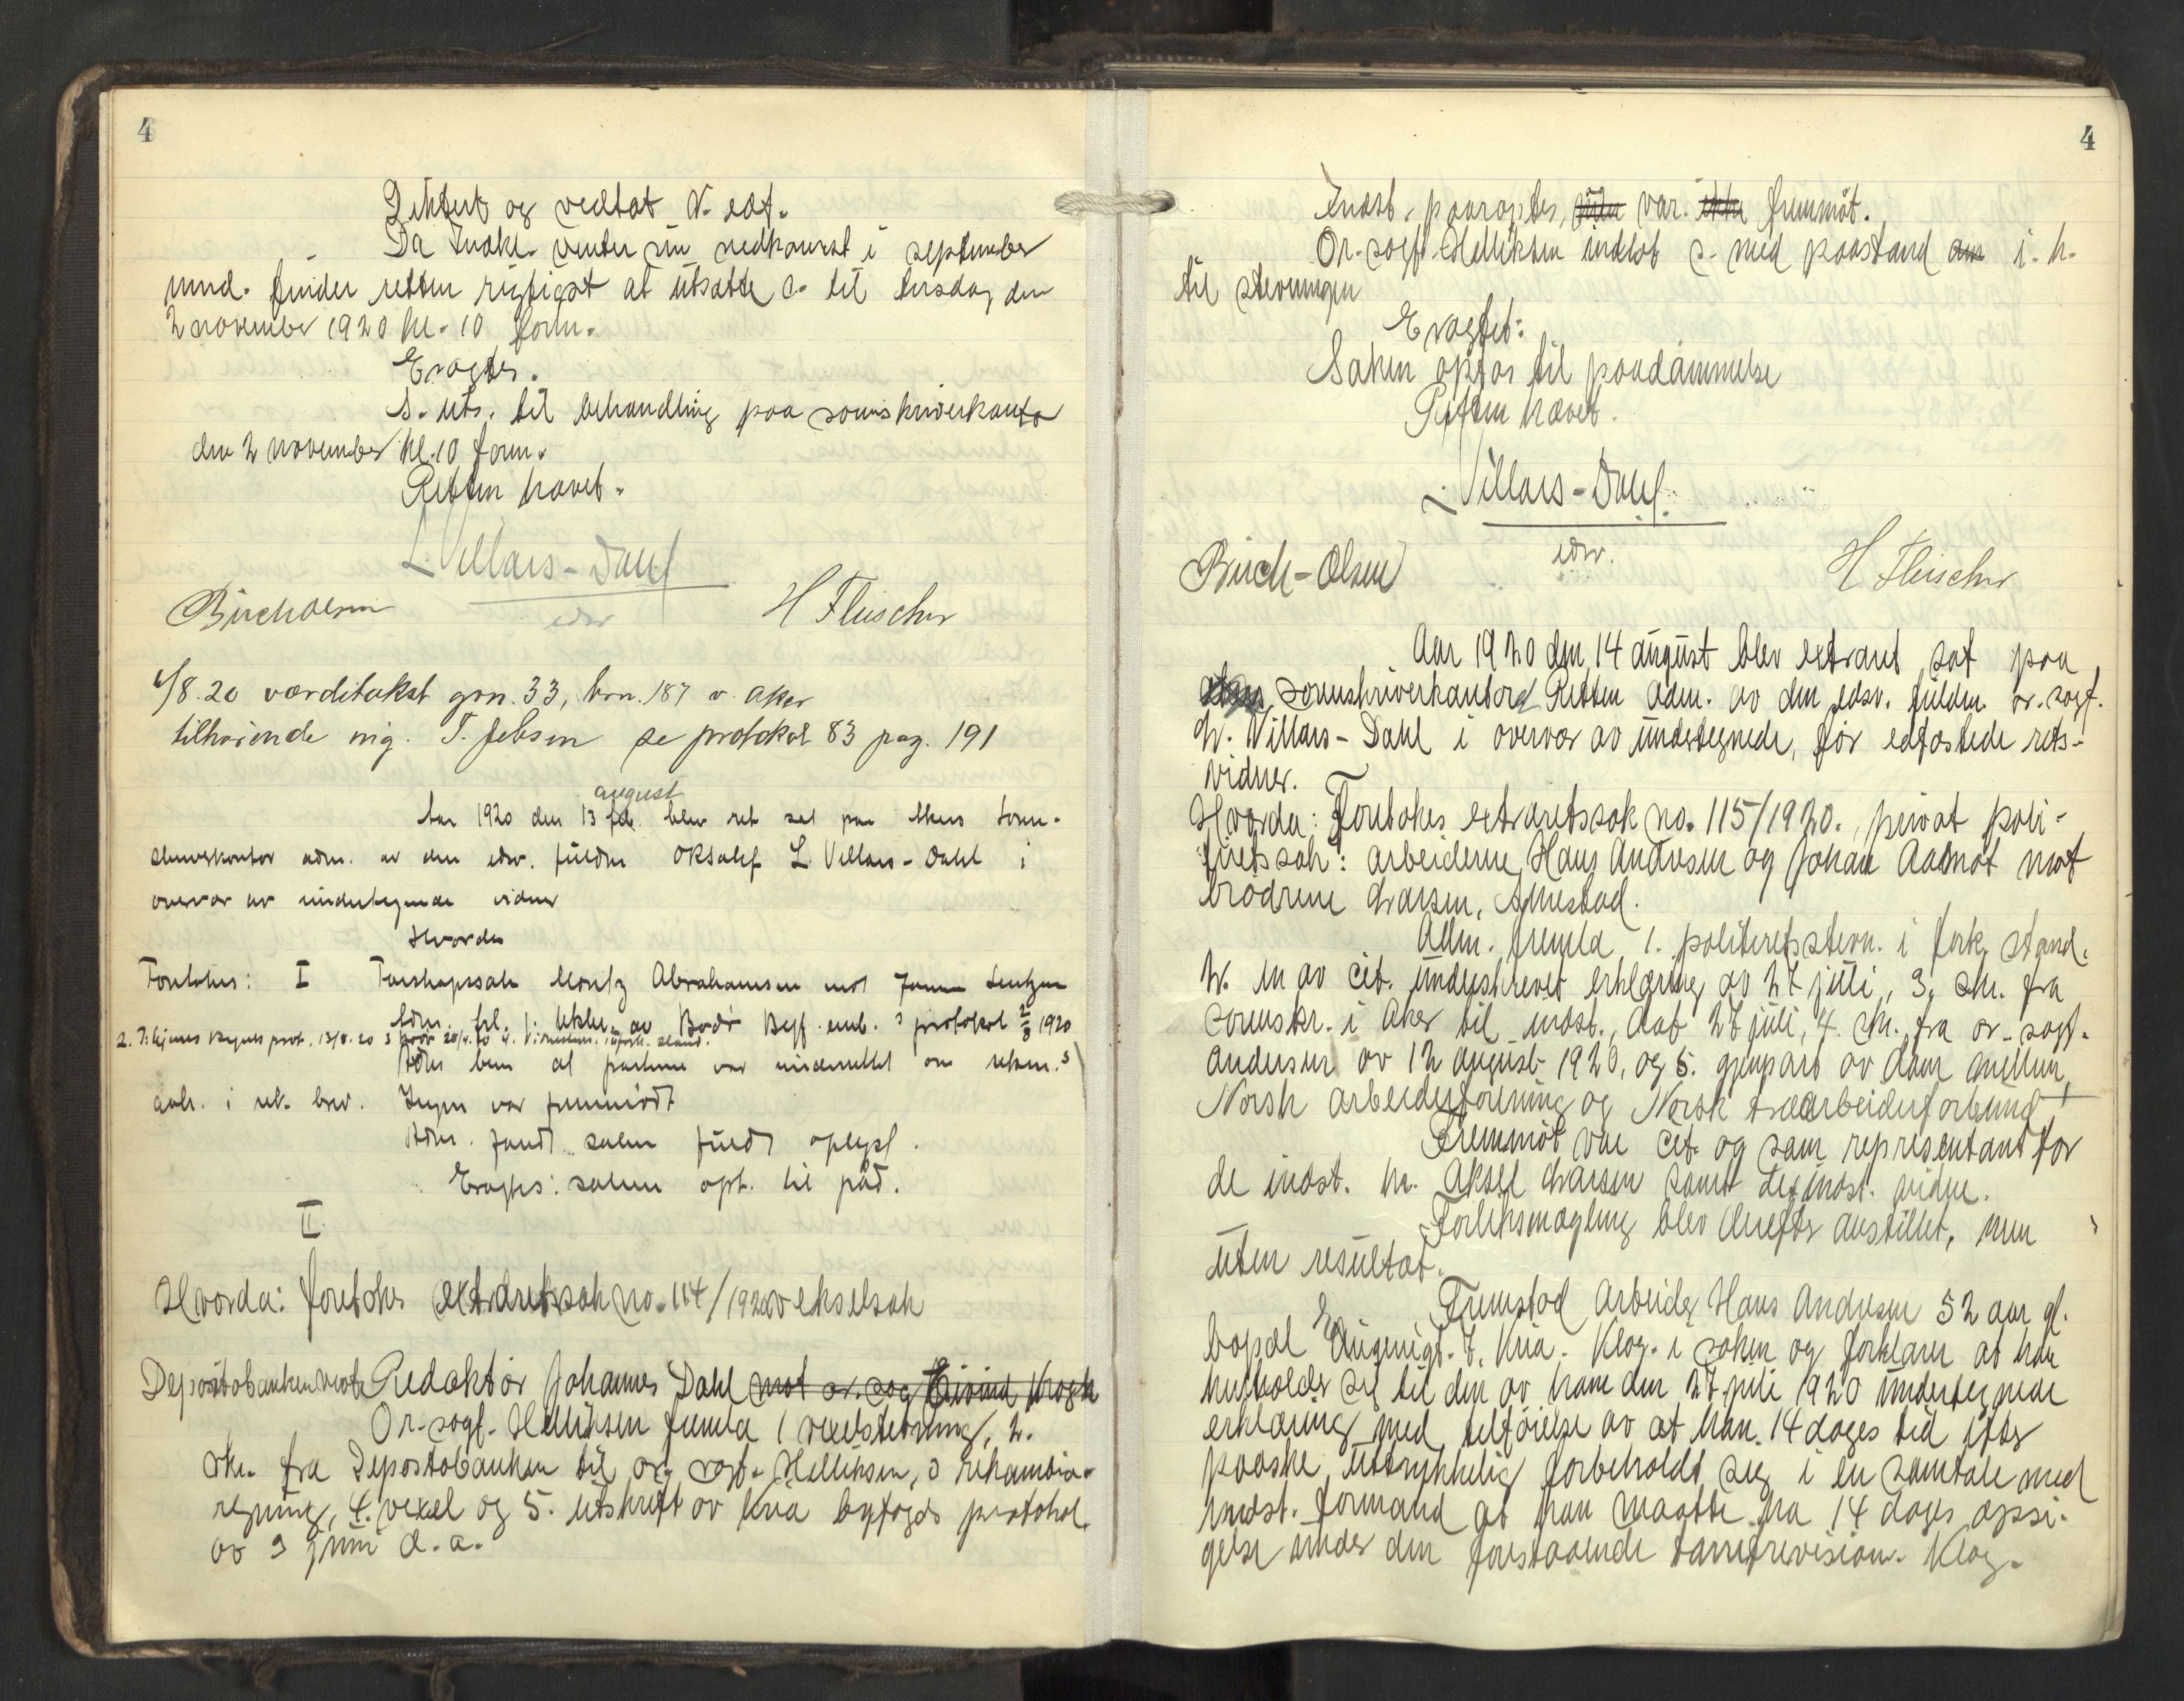 4
Diktert og vedtat N. edf.
Da Indkl. venter sin nedkomst i september
mnd. finder retten rigtigst at utsætte s. til tirsdag den
2 november 1920 kl. 10 form.
Eragtes.
S. uts. til behandling paa sorenskriverkontor
den 2 november kl. 10 form.
Retten hævet.
L. Villars-Dahl
edsv
Birch Olsen
H Fleischer
6/8. 20 værditakst gnr. 33, brn. 187 v. Aker
tilhørende ing. T. Jebsen se protokol 83 pag. 191
august
Aar 1920 den 13 feb. blev ret sat paa Akers soren-
skriverkontor adm. av den edsv. fuldm ORSakf L. Villars-Dahl i
overvær av undertegnede vidner
Hvorda
Foretokes: I Farskapssak Moritz Abrahamsen mot
Adm. frl. 1. av Bodø Byf. emb. 3 protokol 2/8 1920
Adm bem at partene var underrettet om
i rek. brev. Ingen var fremmødt
Adm. fandt saken fuldt oplyst.
Eragtes: saken opt. til påd.
II.
Hvorda: foretokes extraretssak no. 114/1920 vekselsak
Depositobanken mot Redaktør Johannes Dahl mot or. sag Eivind Krogh
Or. sagf. Helliksen fremla 1 vexelstevning, 2.
skr. fra Depositobanken til org sagf. Helliksen, 3 rekambio-
regning, 4. vexel og 5. utskrift av Kria byfogds protokol
av 9 juni d. a.
4
Indst. paaroptes, var. ikke fremmøt.
Or. sagf. Helliksen indlot s. med paastand om i. h.
til stevningen
Eragtet:
Saken optas til paadømmelse
Retten hævet.
L. Villars-Dahl
edsv.
Birch-Olsen
H Fleischer
Aar 1920 den 14 august blev extraret sat paa
Akers sorenskriverkontor Retten adm. av den edsv. fuldm. or. sagf.
L. Villars-Dahl i overvær av undertegnede, før edfæstede rets-
vidner.
Hvorda: Foretokes extraretssak no. 115/1920, privat poli-
tiretssak: arbeiderne Hans Andresen og Johan Aamot mot
brødrene Larsen, Smestad.
Adm. fremla 1. politiretsstevn. i fork. stand.
2. en av cit. underskrevet erklæring av 27 juli, 3. skr. fra
sorenskr. i Aker til indst., dat 27 juli, 4. skr. fra or. sagf.
Andersen av 12 august 1920, og 5. gjenpart av dom mellem
Norsk arbeidsforening og Norsk træarbeiderforbund
Fremmøt var cit. og som representant for
de indst. hr. Aksel Larsen samt de indst. vidne.
Forliksmægling blev derefter anstillet, men
uten resultat.
Fremstod Arbeider Hans Andresen 52 aar gl.
bopæl Eugenigt. 7, Kria. Klag. i saken og forklarer at han
henholder sig til den av ham den 27 juli 1920 undertegnede
erklæring med tilføielse av at han 14 dages tid efter
paaske uttrykkelig forbeholdt sig i en samtale med
indst. formand at han maatte ha 14 dages opsi-
gelse under den forestaaende tarifrevision. Klag.